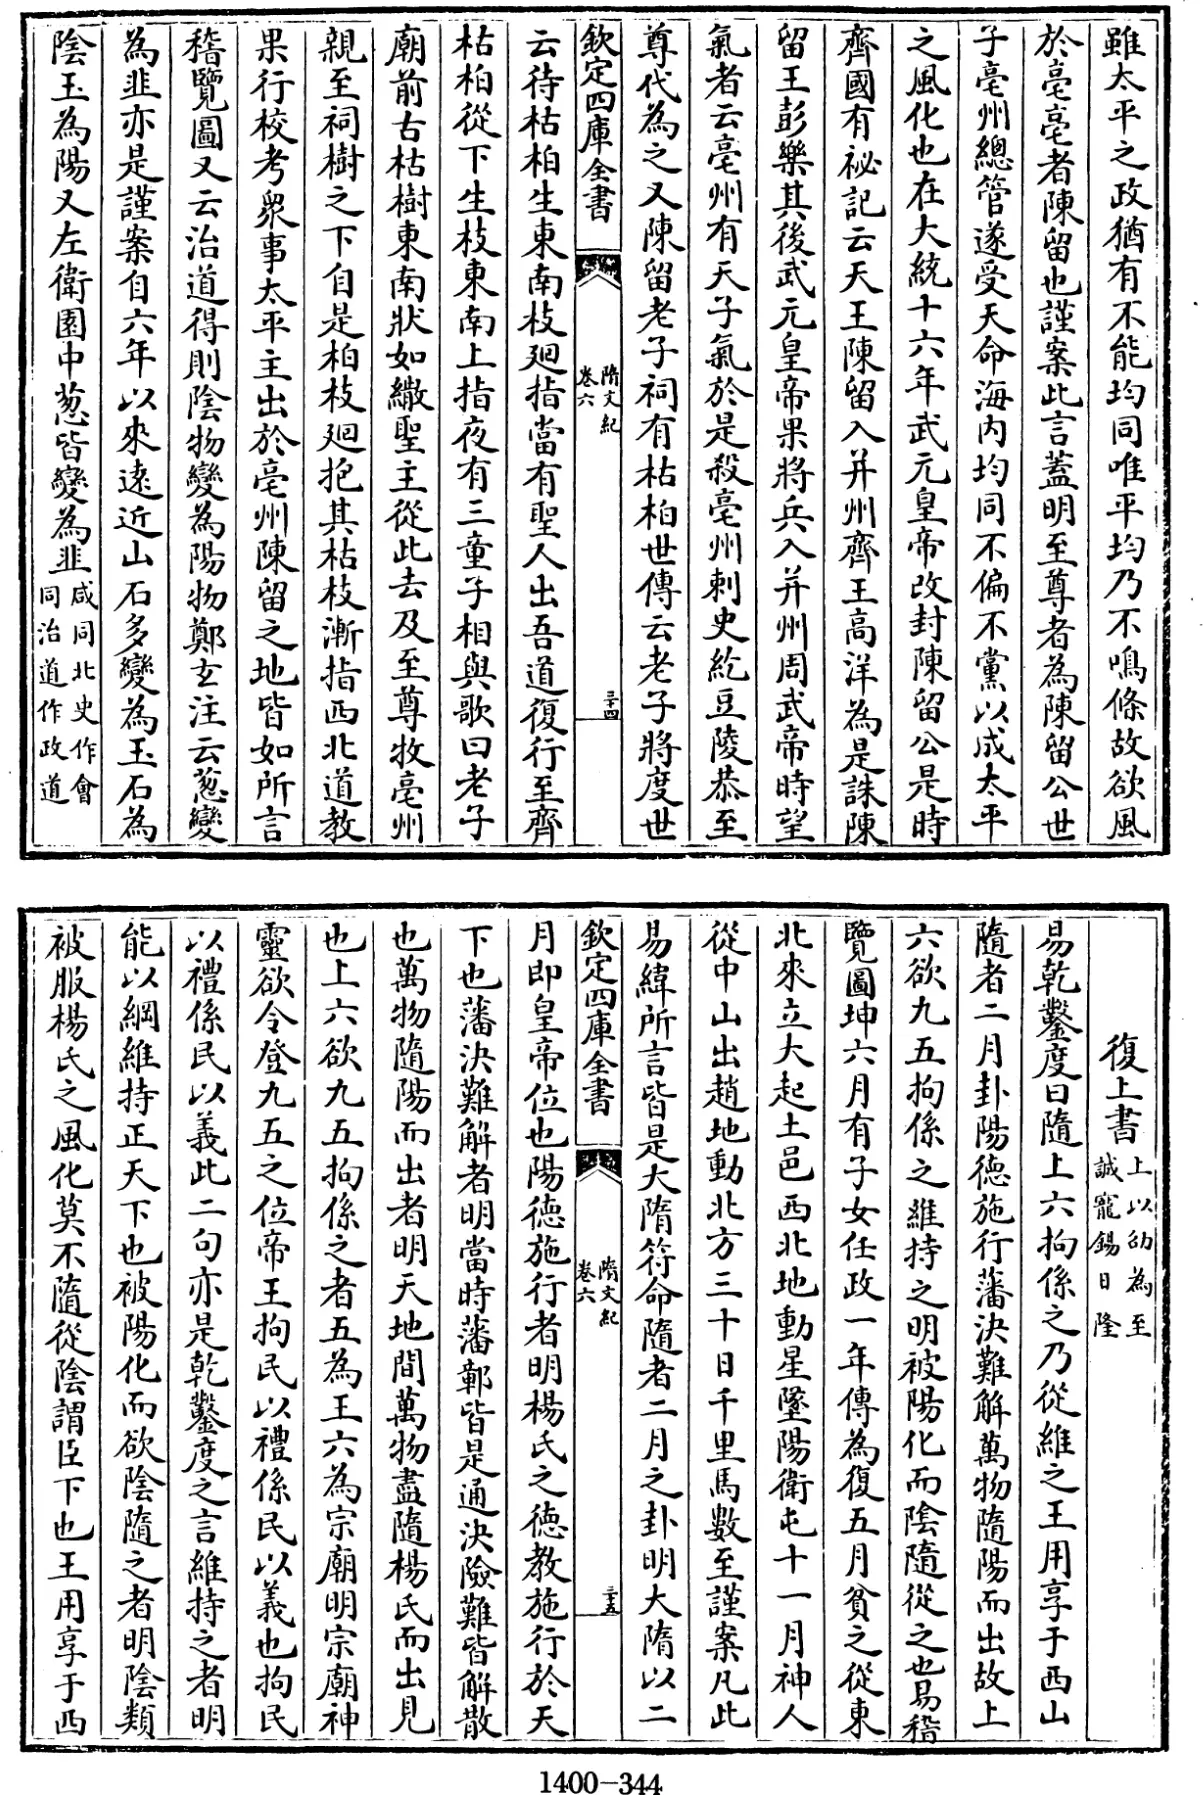 雖太平之政猶有不能均同唯平均乃不鳴條故欲風
於亳亳者陳留也謹案此言蓋明至尊者為陳留公世
子亳州總管遂受天命海內均同不偏不黨以成太平
之風化也在大統十六年武元皇帝改封陳留公是時
齊國有祕記云天王陳留入并州齊王高洋為是誅陳
留王彭樂其後武元皇帝果將兵入并州周武帝時望
氣者云亳州有天子氣於是殺亳州刺史紇豆陵恭至
尊代為之又陳留老子祠有枯柏世傳云老子將度世
欽定四庫全書
隋文紀
卷六
三十四
云待枯柏生東南枝廻指當有聖人出吾道復行至齊
枯柏從下生枝東南上指夜有三童子相與歌曰老子
廟前古枯樹東南狀如繖聖主從此去及至尊牧亳州
親至祠樹之下自是柏枝廻抱其枯枝漸指西北道教
果行校考衆事太平主出於亳州陳留之地皆如所言
稽覽圖又云治道得則陰物變為陽物鄭玄注云葱變
為韭亦是謹案自六年以來遠近山石多變為玉石為
陰玉為陽又左衛園中葱皆變為韭
咸同北史作會
同治道作政道
復上書
上以劭為至
誠寵錫日隆
易乾鑿度曰隨上六拘係之乃從維之王用享于西山
隨者二月卦陽德施行藩決難解萬物隨陽而出故上
六欲九五拘係之維持之明被陽化而陰隨從之也易稽
覽圖坤六月有子女任政一年傳為復五月貧之從東
北來立大起土邑西北地動星墜陽衛屯十一月神人
從中山出趙地動北方三十日千里馬數至謹案凡此
易緯所言皆是大隋符命隨者二月之卦明大隋以二
欽定四庫全書
隋文紀
卷六
三十五
月即皇帝位也陽德施行者明楊氏之德教施行於天
下也藩決難解者明當時藩鄣皆是通決險難皆解散
也萬物隨陽而出者明天地間萬物盡隨楊氏而出見
也上六欲九五拘係之者五為王六為宗廟明宗廟神
靈欲令登九五之位帝王拘民以禮係民以義也拘民
以禮係民以義此二句亦是乾鑿度之言維持之者明
能以綱維持正天下也被陽化而欲陰隨之者明陰類
被服楊氏之風化莫不隨從陰謂臣下也王用享于西
1400-344